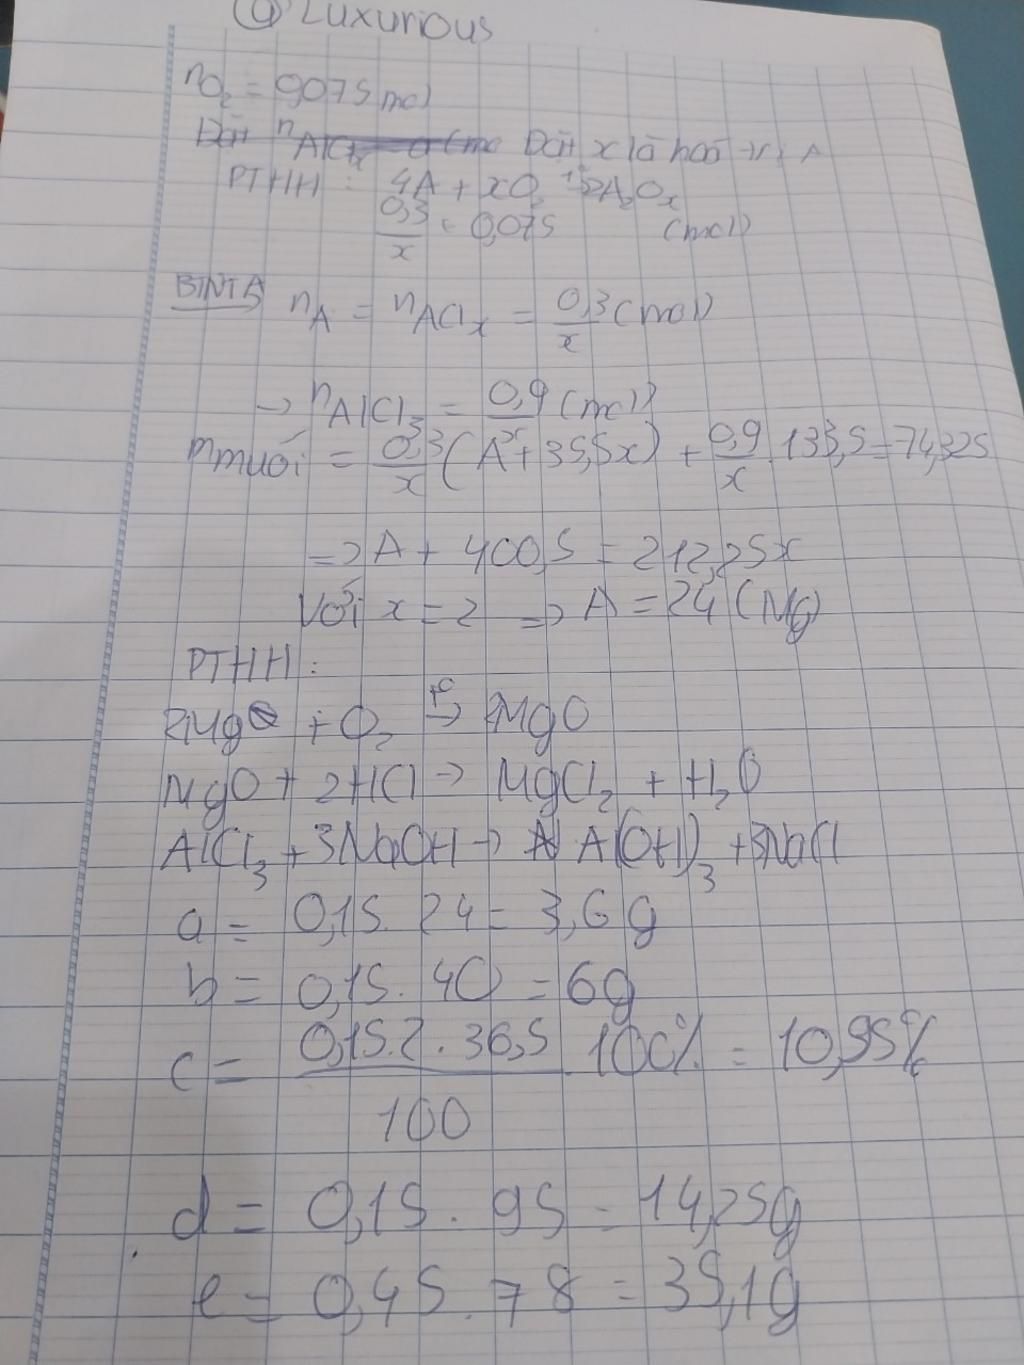 @ Luxurious
nO₂ = 0,075 mol
Đặt x là hoá trị A
PTHH : 4A + xO₂ → 2A₂Oₓ
0,3/x ← 0,075 (mol)
BTNT A nA = nAClₓ = 0,3/x (mol)
→ nAlCl₃ = 0,9/x (mol)
mmuối = 0,3/x (A + 35,5x) + 0,9/x . 133,5 = 74,325
=> A + 400,5 = 212,25x
Với x = 2 => A = 24 (Mg)
PTHH :
2Mg + O₂ →t° 2MgO
MgO + 2HCl → MgCl₂ + H₂O
AlCl₃ + 3NaOH → Al(OH)₃ + 3NaCl
a = 0,15. 24 = 3,6g
b = 0,15. 40 = 6g
c = 0,15.2.36,5/100 . 100% = 10,95%
d = 0,15 . 95 = 14,25g
e = 0,45 . 78 = 35,1g